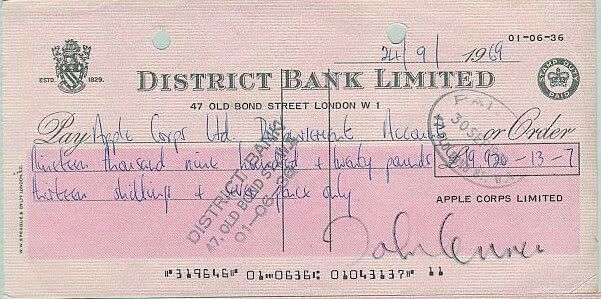 01-06-36
24/9/ 1969
ESTD. 1829.
DISTRICT BANK LIMITED
STAMP DUTY PAID
47 OLD BOND STREET LONDON W 1
Pay Apple Corps Ltd. Disbursement Account or Order
Nineteen thousand nine hundred + twenty pounds £19,920-13-7
thirteen shillings + seven pence only
APPLE CORPS LIMITED
DISTRICT BANK
47, OLD BOND STREET
01-06-36
PAI
30 SEP
John Lennon
"319646" 01"0636: 01043137" 11